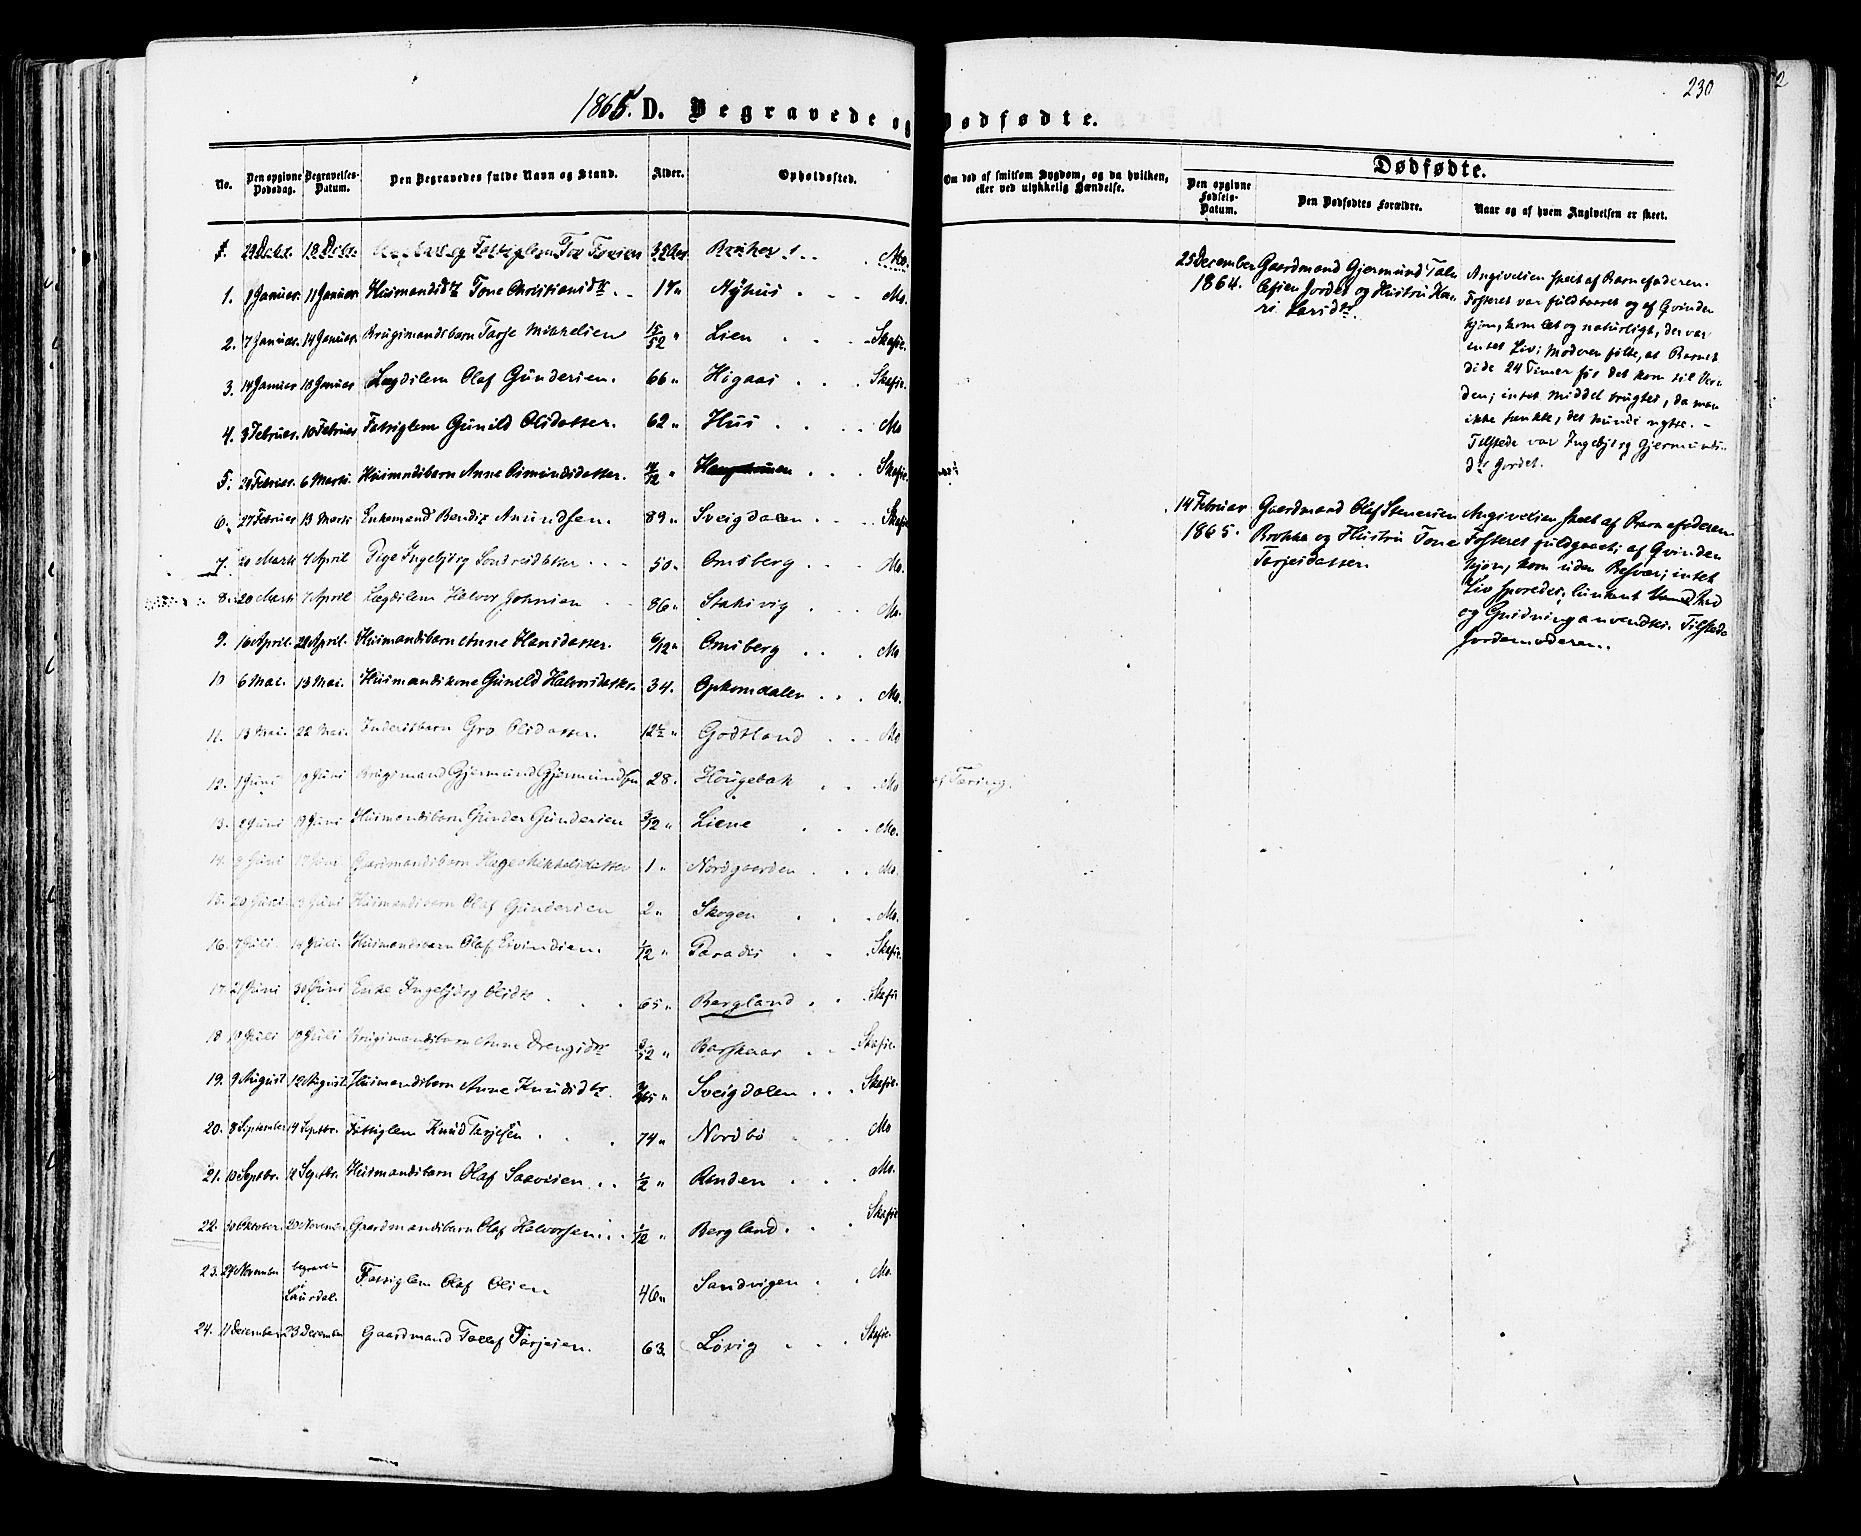 230
1865. D. Begravede og Dødfødte.
No. Den opgivne Dødsdag. Begravelses-Datum. Den Begravedes fulde Navn og Stand. Alder. Opholdssted. Om død af smitsom Sygdom, og da hvilken, eller ved ulykkelig Hændelse.
Dødfødte.
Den opgivne Fødsels-Datum. Den Dødfødtes Forældre. Naar og af hvem Angivelsen er skeet.
18 Decbr. Fattiglem Tov Mo.
1. 1 Januar. 11 Januar. Huusmandsdtr Tone Christiansdtr. 17 " Nyhus Mo.
2. 7 Januar. 14 Januar. Brugsmandsbarn Tarje Mikkelsen 15/52 " Lien Skafse.
3. 14 Januar 18 Januar Lægdslem Olaf Gundersen. 66 " Høgaas Skafse.
4. 3 Februar. 10 Februar Fattiglem Gunild Olsdatter. 62 " Hus Mo
5. 24 Februar. 6 Marts. Huusmandsbarn Anne Asmundsdatter. Skafse.
6. 27 Februar 13 Marts Enkemand Bendix Aanundsen. 89 " Sveigdalen Skafse
7. 20 Marts 4 April Pige Ingebjørg Sondresdatter 50 " Omsberg Mo.
8. 20 Marts 7 April Lægdslem Halvor Johnsen 86 " Staksvig Mo.
9. 16 April. 24 April. Huusmandsbarn Anne Hansdatter. 6/12 " Omsberg Mo
10 6 Mai. 13 Mai. Huusmandskone Gunild Halvorsdatter. 34. Opkomdalen Mo.
11. 13 Mai. 22 Mai. Inderstbarn Gro Olsdatter. 12½ " Godtland Mo
12. 1 Juni 10 Juni Brugsmand Gjermund Gjermundsen 28. Hougebak Mo af Tæring.
13. 2 Juni 19 Juni Huusmandsbarn Gunder Gundersen 3/12 " Liene Mo.
14. 9 Juni 17 Juni Gaardmandsbarn Hæge Mikkelsdatter 1 " Nordgaarden Mo.
15. 20 Juni Juni Huusmandsbarn Olaf Gundersen 2 " Skogen Mo.
16. 7 Juli. 14 Juli. Huusmandsbarn Olaf Eivindsen. 1/12 " Paradis Skafse.
17. 21 Juni 30 Juni Enke Ingebjørg Olsdtr 65 " Bergland Skafse
18 10 Juli 18 Juli Brugsmandsbarn Anne Drengsdtr /52 " Barskaar Skafse.
19. 9 August 12 August. Huusmandsbarn Anne Knudsdtr. /365 " Sveigdalen Skafse.
20. 8 September 14 Septbr. Fattiglem Knud Tarjesen 74 " Nordbø Mo
21. 10 Septbr. Septbr. Huusmandsbarn Olaf Saavesen ½ " Rinden Mo.
22. 30 Oktober 20 November Gaardmandsbarn Olaf Halvorsen 1/12 " Bergland. Skafse
23. 24 November begravet i Laurdal. Fattiglem Olaf Olsen 46 " Sandvigen Mo.
24. 11 December 23 December Gaardmand Tallef Tarjesen. 63. Løvig Skafse.
25 December 1864.
Gaardmand Gjermund Tal-
lefsen Jordet og Hustru Ka-
ri Larsdtr.
Angivelsen skeet af Barnefaderen.
Fosteret var fuldbaaret og af Qvinde-
kjøn, kom let og naturligt, der var
intet Liv; Moderen følte, at Barnet
døde 24 Timer før det kom til Ver-
den; intet Middel brugtes, da man
ikke tænkte, det kunde nytte. -
Tilstede var Ingebjørg Gjermunds-
dtr Jordet.
14 Februar 1865.
Gaardmand Olaf Stenersen
Brokke og Hustru Tone
Tarjesdatter.
Angivelsen skeet af Barnefaderen.
Fosteret fuldbaaret; af Qvinde-
kjøn, kom uden Besvær; intet
Liv sporedes; lunkent Vand
og Gnidning anvendtes. Tilstede
Jordemoderen.